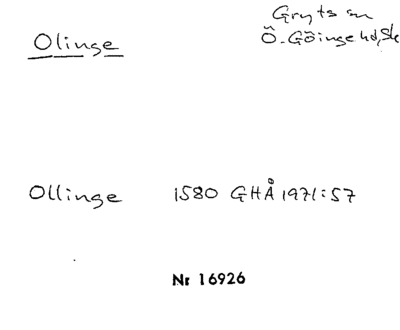 Olinge
Gryts sn
Ö. Göinge hd, Sk
Ollinge 1580 GHÅ 1971:57
Nr 16926